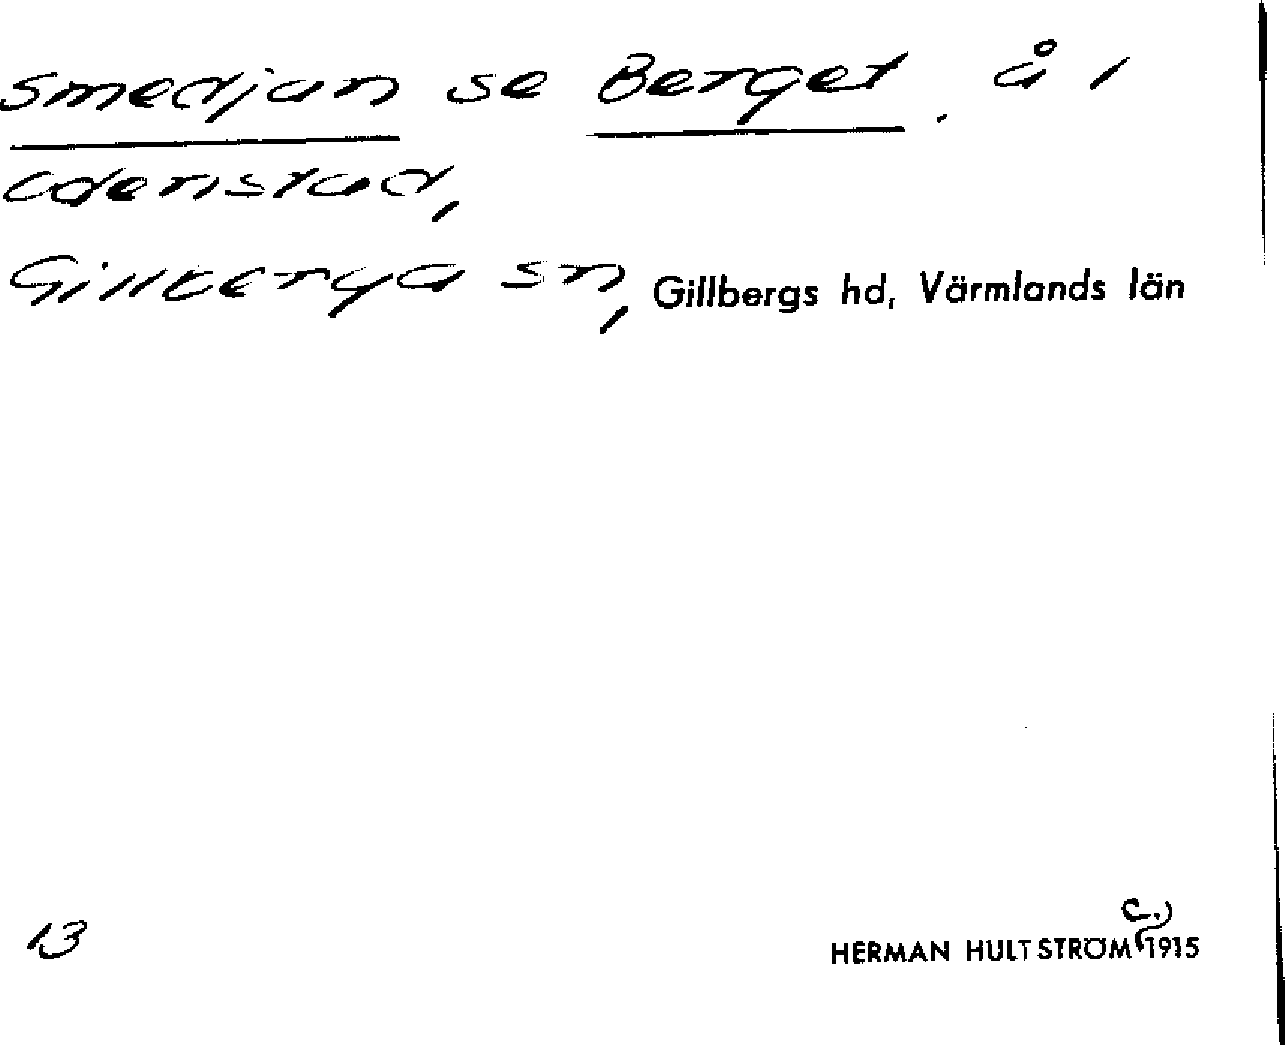 Smedjan se Berget. å 1
Odenstad,
Gillberga sn, Gillbergs hd, Värmlands län
13
HERMAN HULTSTRÖM (c.) 1915